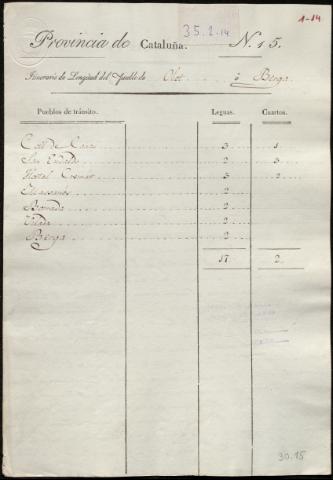 1-14
35-2-14
Provincia de Cataluña. N. 15.
Itinerario de Longitud del Pueblo de Olot á Berga
Pueblos de tránsito. Leguas. Cuartos.
Coll de Canas 3 1
San 2 3
Hostal 3 2
2
Borradá 2
2
Berga 2
17 2
30.15